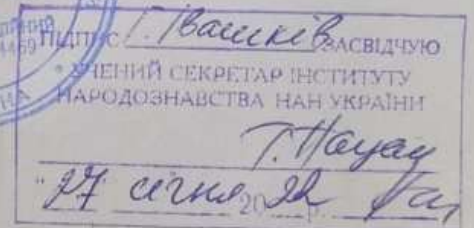 ПІДПИС Г. Івашків ЗАСВІДЧУЮ
УЧЕНИЙ СЕКРЕТАР ІНСТИТУТУ
НАРОДОЗНАВСТВА НАН УКРАЇНИ
"27 січня 2022 р.